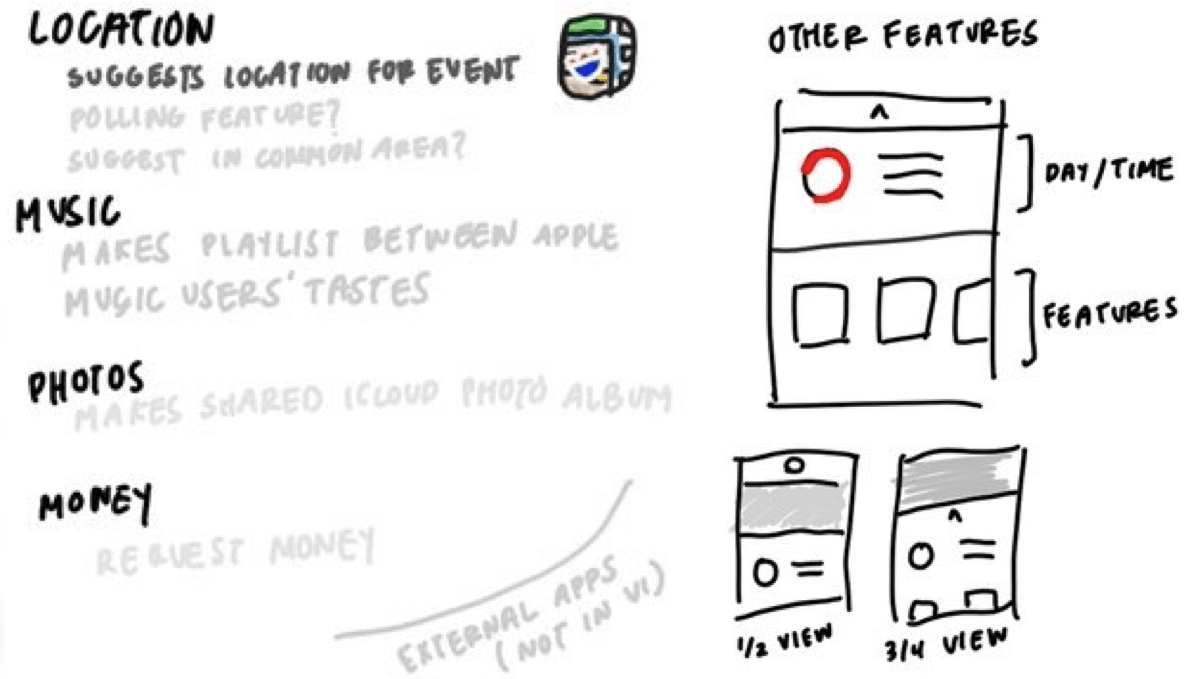 LOCATION
SUGGESTS LOCATION FOR EVENT
POLLING FEATURE?
SUGGEST IN COMMON AREA?
MUSIC
MAKES PLAYLIST BETWEEN APPLE
MUSIC USERS' TASTES
PHOTOS
MAKES SHARED ICLOUD PHOTO ALBUM
MONEY
REQUEST MONEY
EXTERNAL APPS
(NOT IN V1)
OTHER FEATURES
DAY/TIME
FEATURES
1/2 VIEW
3/4 VIEW